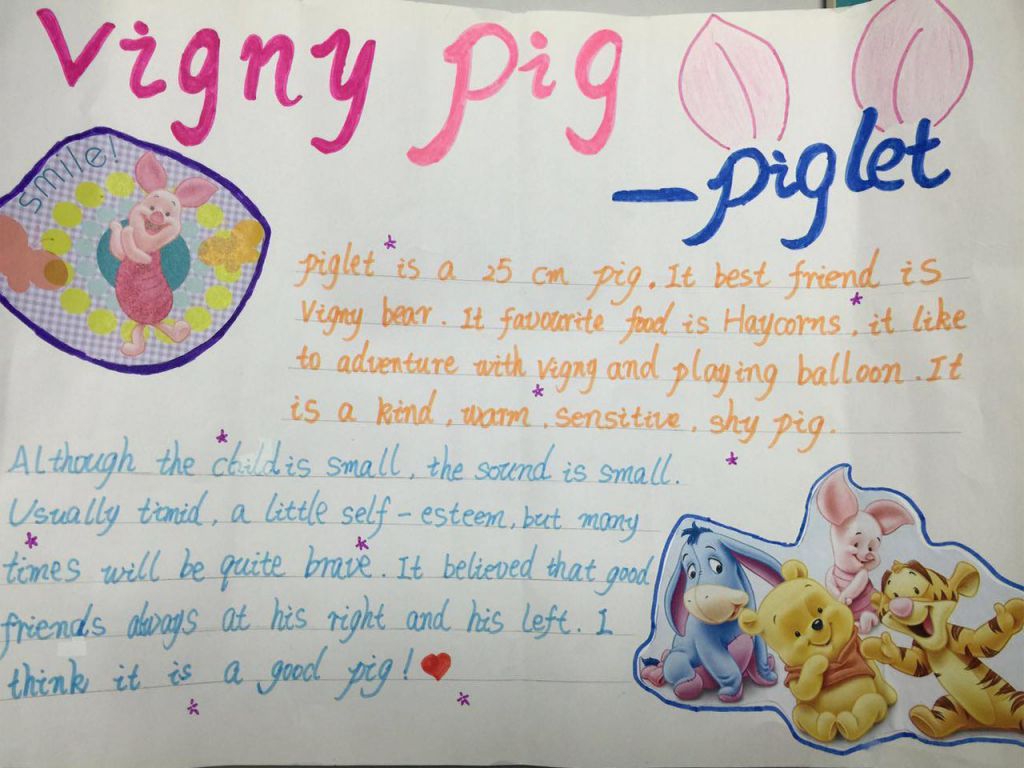 Vigny pig
— piglet
smile!
piglet is a 25 cm pig. It best friend is
Vigny bear. It favourite food is Haycorns, it like
to adventure with vigny and playing balloon. It
is a kind, warm, sensitive, shy pig.
Although the child is small, the sound is small.
Usually timid, a little self-esteem, but many
times will be quite brave. It believed that good
friends always at his right and his left. I
think it is a good pig!